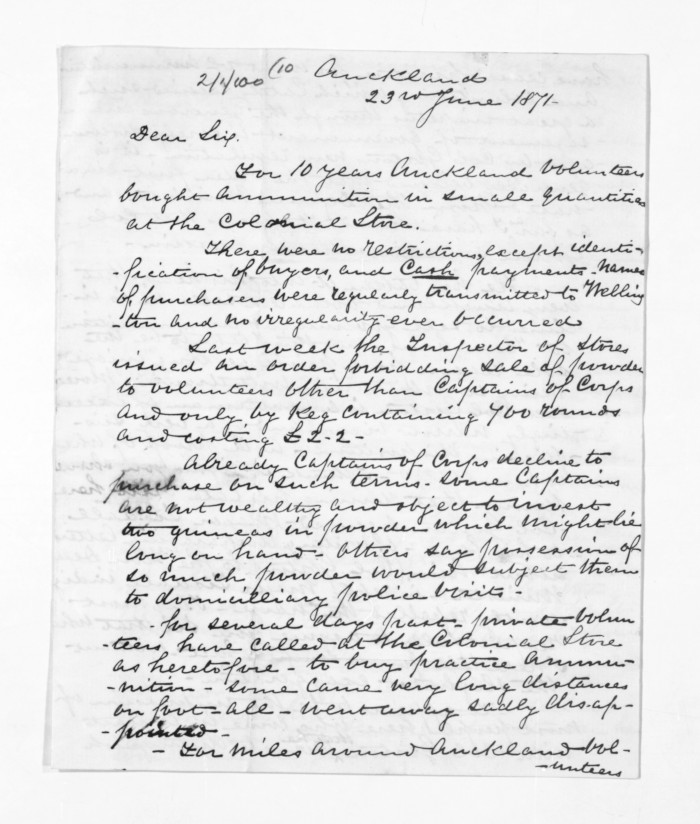 (10 Auckland
23rd June 1871-
Dear Sir.
For 10 years Auckland Volunteers
bought ammunition in small quantities
at the Colonial Store.
There were no restrictions, except identi-
-fication of buyers, and Cash payments - Names
of purchasers were regularly transmitted to Welling
-ton and no irregularity ever occurred
Last week the Inspector of Stores
issued an order forbidding sale of powder
to volunteers other than Captains of Corps
and only by Keg containing 700 rounds
and costing £2-2-
Already Captains of Corps decline to
purchase on such terms - some Captains
are not wealthy and object to invest
two guineas in powder which might lie
long on hand - others say possession of
so much powder would subject them
to domicilliary police visits
- for several days past - private Volun
-teers, have called at the Colonial Store
as heretofore - to buy practice ammu-
-nition - some came very long distances
on foot - all - went away sadly disap-
-pointed -
- For miles around Auckland Vol-
-unteers